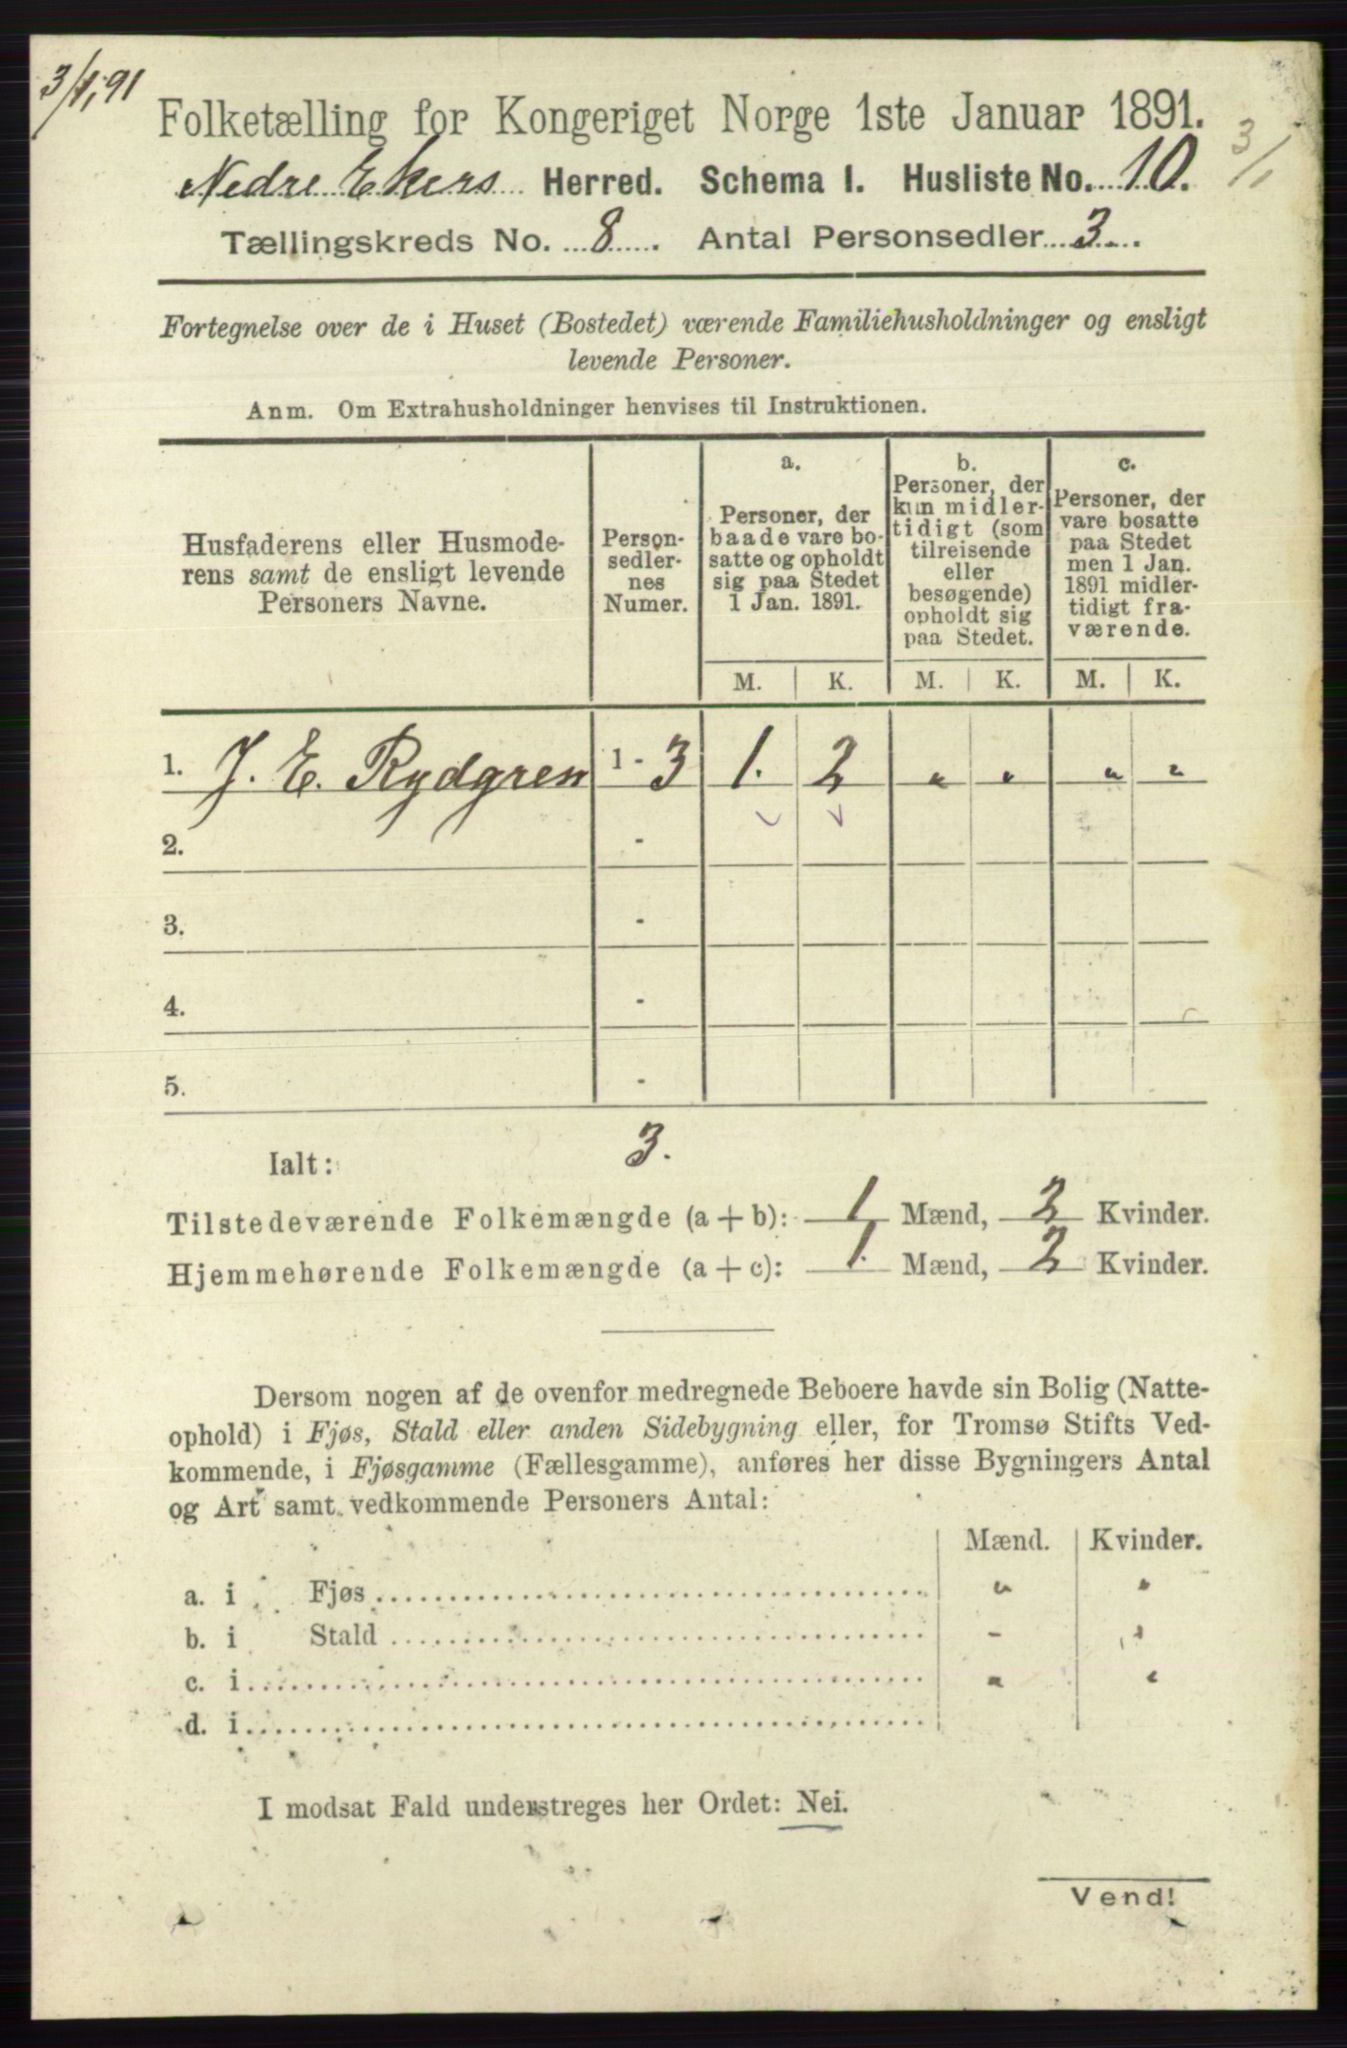 3/1, 91
Folketælling for Kongeriget Norge 1ste Januar 1891.
3/1
Nedre Ekers Herred. Schema I. Husliste No. 10.
Tællingskreds No. 8. Antal Personsedler 3.
Fortegnelse over de i Huset (Bostedet) værende Familiehusholdninger og ensligt
levende Personer.
Anm. Om Extrahusholdninger henvises til Instruktionen.
Husfaderens eller Husmode-
rens samt de ensligt levende
Personers Navne.
Person-
sedler-
nes
Numer.
a.
Personer, der
baade vare bo-
satte og opholdt
sig paa Stedet
1 Jan. 1891.
b.
Personer, der
kun midler-
tidigt (som
tilreisende
eller
besøgende)
opholdt sig
paa Stedet.
c.
Personer, der
vare bosatte
paa Stedet
men 1 Jan.
1891 midler-
tidigt fra-
værende.
M. K. M. K. M. K.
1. J. E. Rydgren 1 - 3 1. 2 " " " "
2. -
3. -
4. -
5. -
Ialt: 3.
Tilstedeværende Folkemængde (a + b): 1 Mænd, 2 Kvinder.
Hjemmehørende Folkemængde (a + c): 1. Mænd, 2 Kvinder.
Dersom nogen af de ovenfor medregnede Beboere havde sin Bolig (Natte-
ophold) i Fjøs, Stald eller anden Sidebygning eller, for Tromsø Stifts Ved-
kommende, i Fjøsgamme (Fællesgamme), anføres her disse Bygningers Antal
og Art samt vedkommende Personers Antal:
Mænd. Kvinder.
a. i Fjøs " "
b. i Stald " "
c. i " "
d. i
I modsat Fald understreges her Ordet: Nei.
Vend!